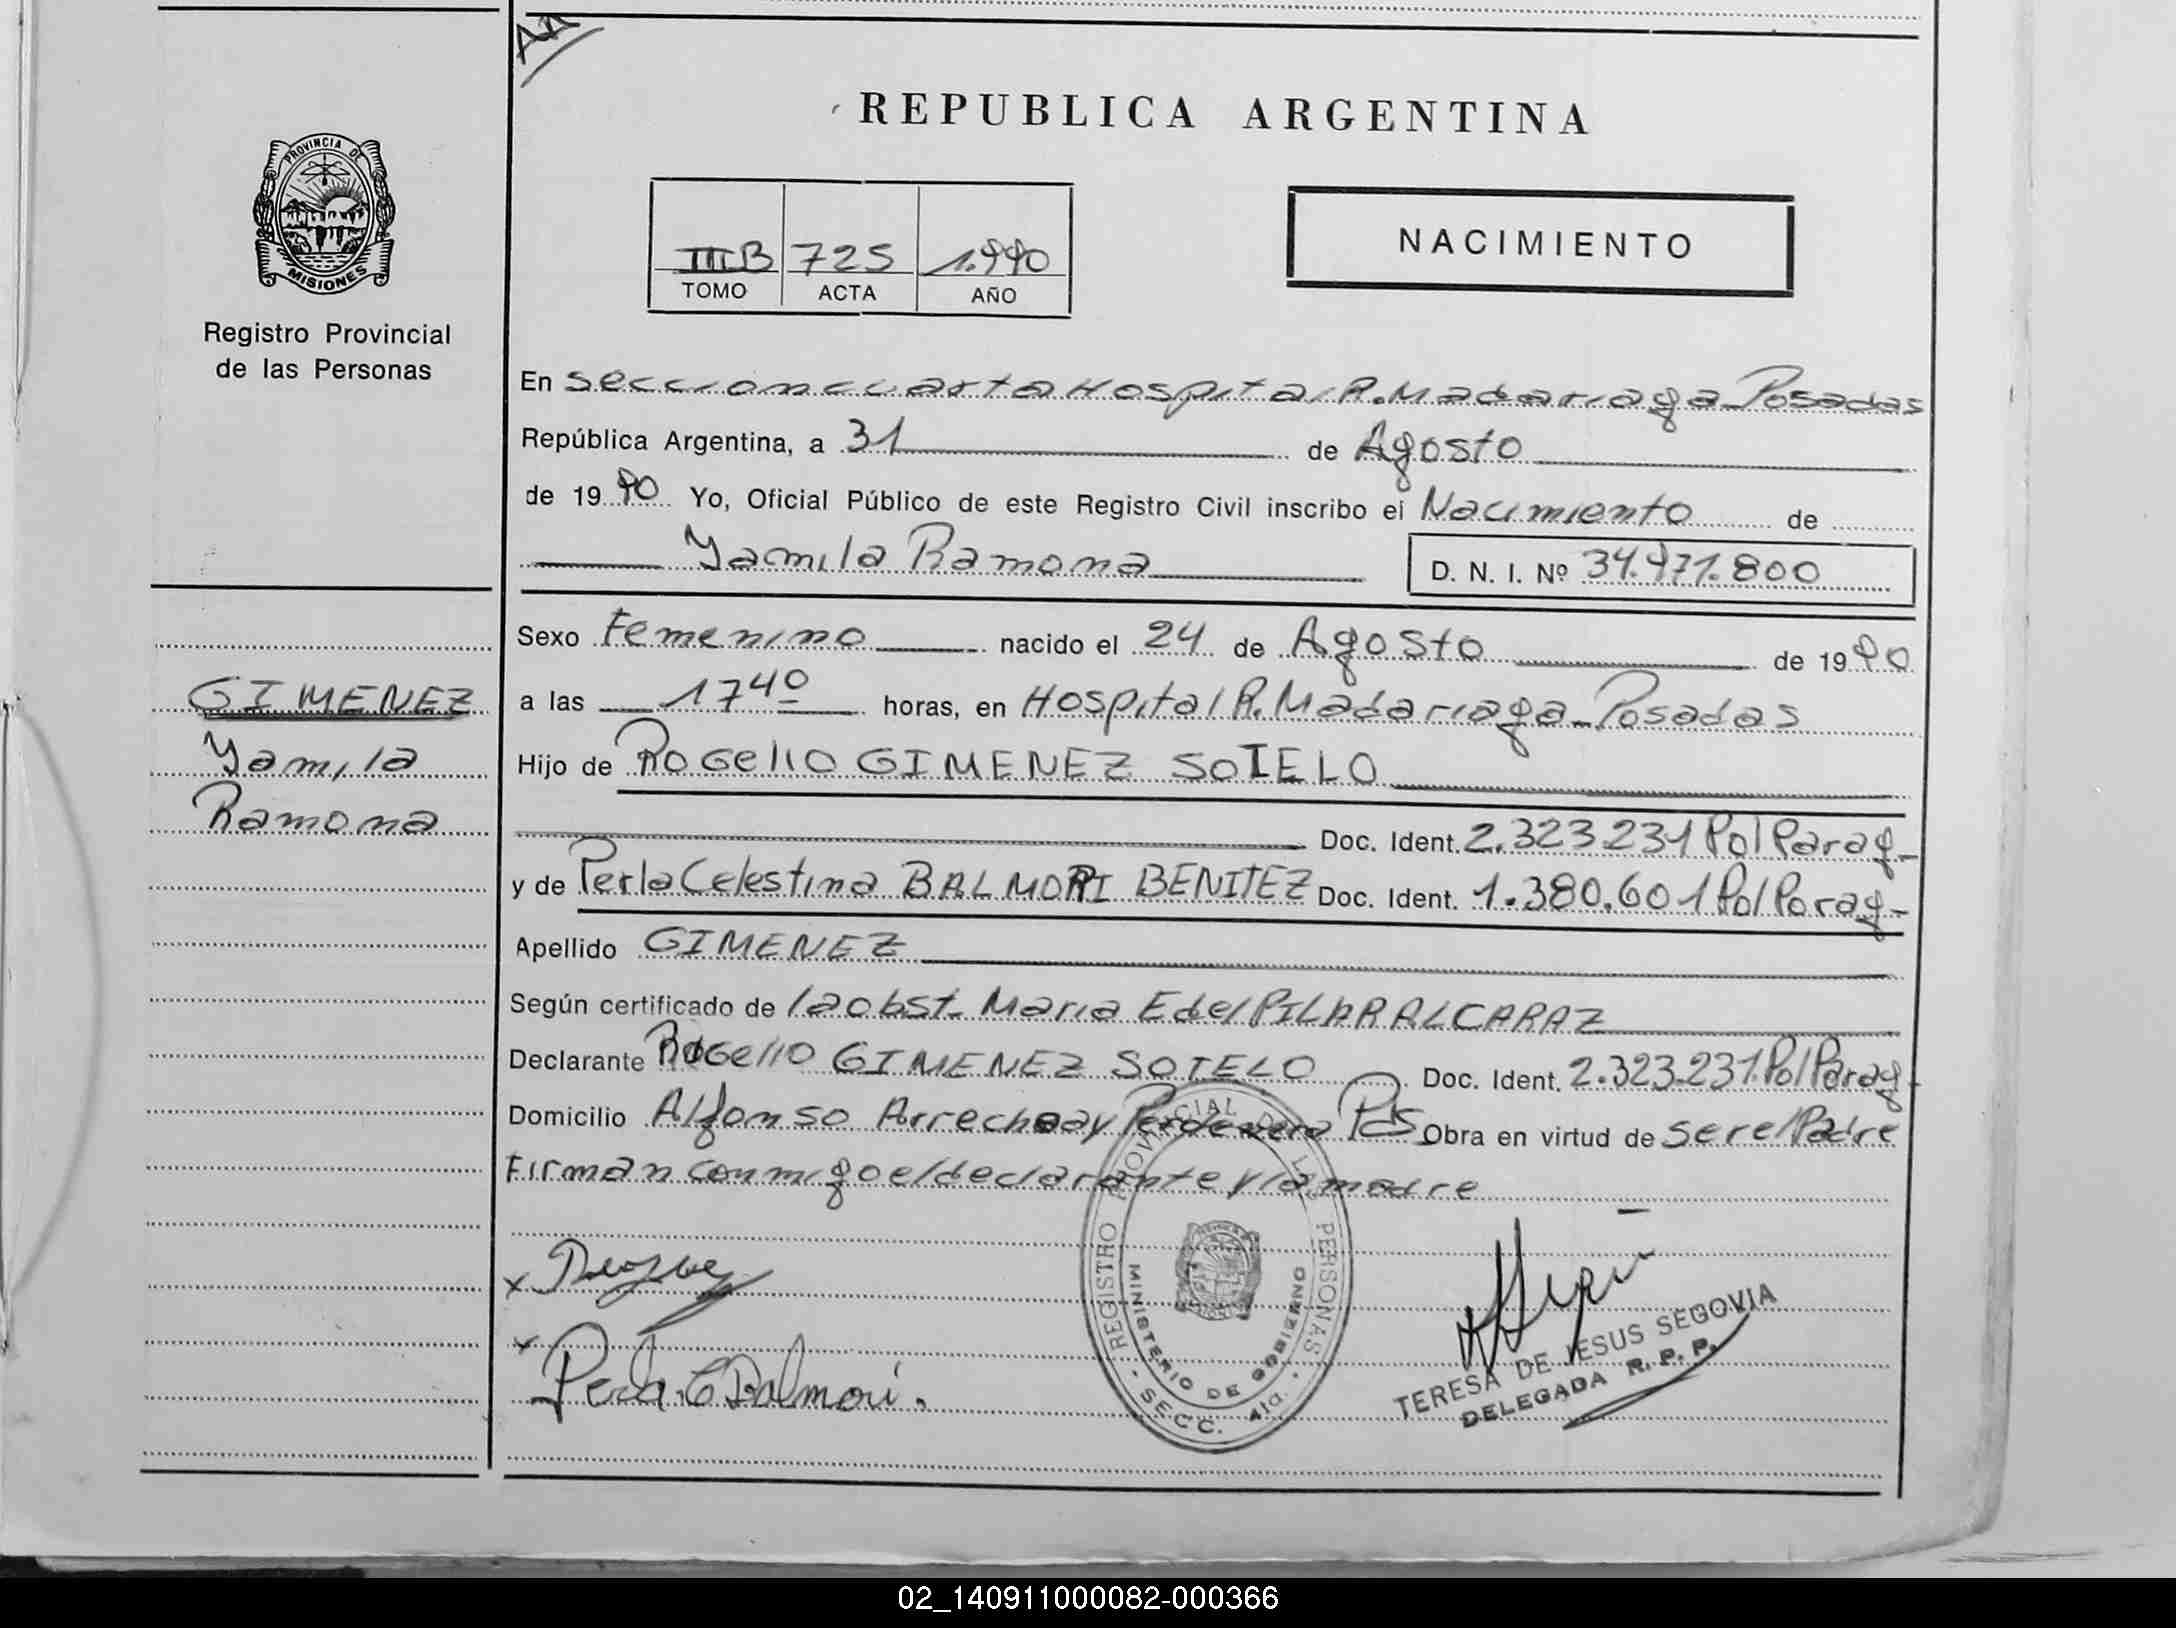 AA
REPUBLICA ARGENTINA
PROVINCIA DE
MISIONES
Registro Provincial
de las Personas
III B 725 1.990
TOMO ACTA AÑO
NACIMIENTO
En seccion cuarta Hospital R. Madariaga_Posadas
República Argentina, a 31 de Agosto
de 19 90 Yo, Oficial Público de este Registro Civil inscribo el Nacimiento de
Yamila Ramona D. N. I. Nº 34.971.800
Sexo Femenino nacido el 24 de Agosto de 19 90
a las 17 40 horas, en Hospital R. Madariaga_Posadas
Hijo de Rogelio GIMENEZ SOTELO
Doc. Ident. 2.323.231 Pol Parag-
y de Perla Celestina BALMORI BENITEZ Doc. Ident. 1.380.601 Pol Parag-
Apellido GIMENEZ
Según certificado de la obst- Maria E del PILAR ALCARAZ
Declarante Rogelio GIMENEZ SOTELO Doc. Ident. 2.323.231 Pol Parag-
Domicilio Alfonso Arrechea y Perdenera Pds Obra en virtud de ser el Padre
Firman conmigo el declarante y la madre
GIMENEZ
Yamila
Ramona
x
x
Perla C Balmori.
REGISTRO PROVINCIAL DE LAS PERSONAS
MINISTERIO DE GOBIERNO
- SECC. 4ta. -
TERESA DE JESUS SEGOVIA
DELEGADA R. P. P.
02_140911000082-000366